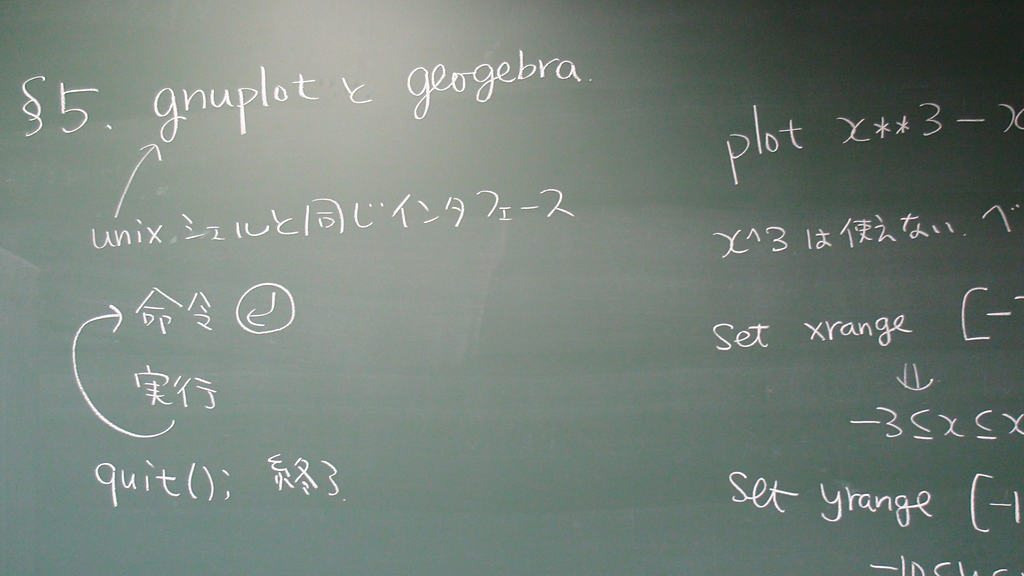 §5. gnuplot と geogebra.
unix シェルと同じインタフェース
命令
実行
quit(); 終了.
plot x**3-x
x^3 は使えない. べ
set xrange [-
⇓
-3≤x≤x
set yrange [-1
-10≤